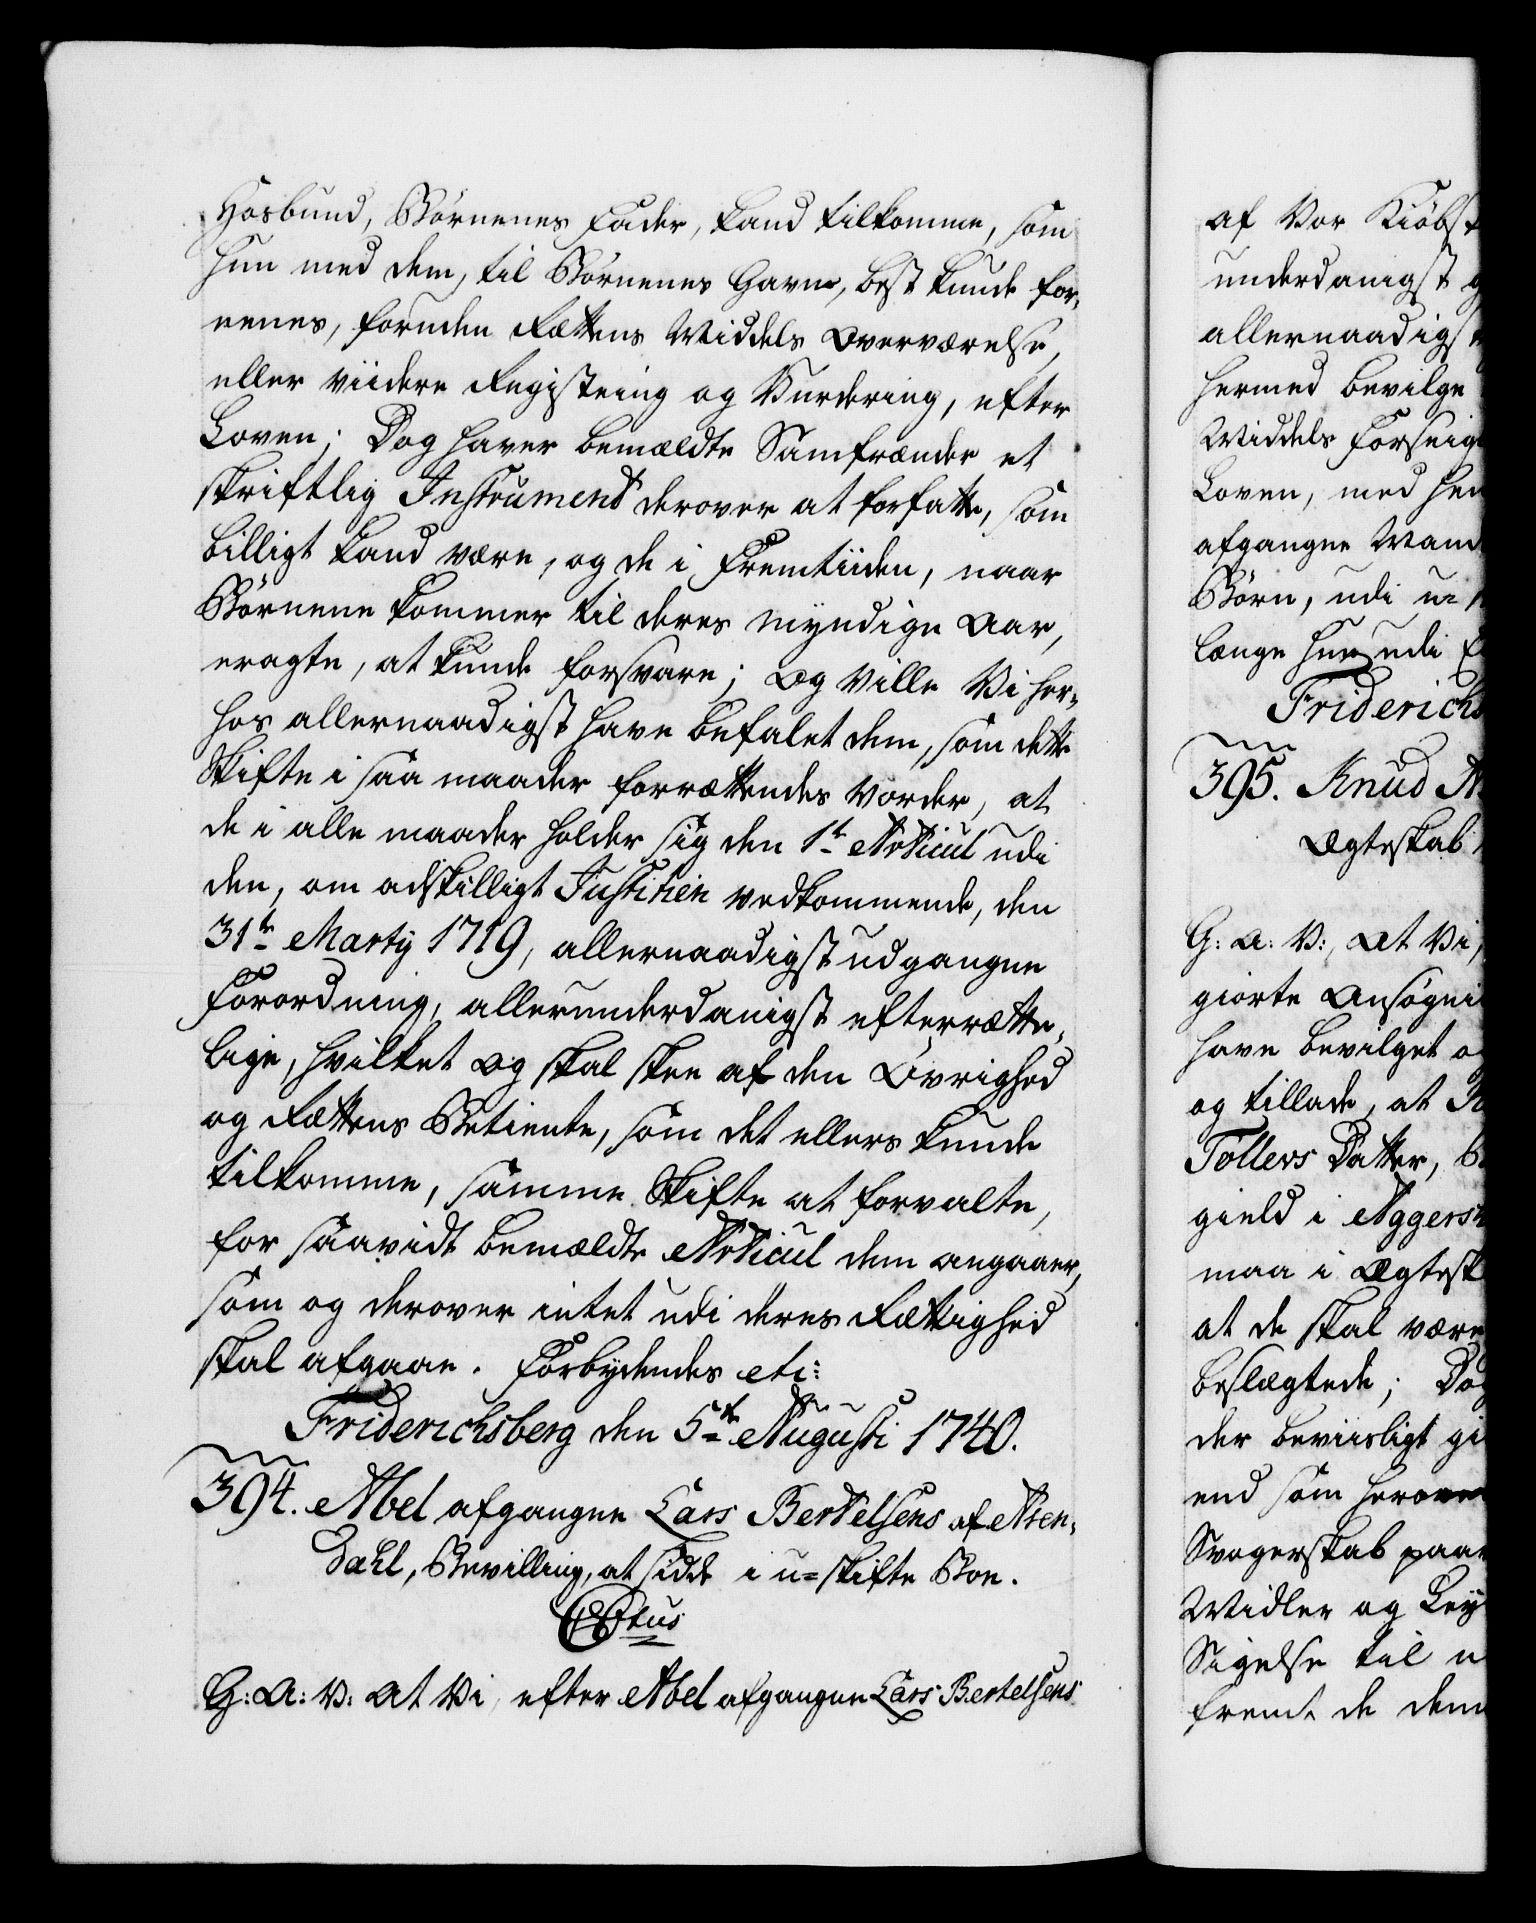 Hosbund, Börnenes Fader, kand tilkomme, som
hun med dem, til Börnenes Gavn, best kunde for-
eenes, foruden Rættens Middels Overværelse,
eller viidere Registering og Vurdering, efter
Loven; Dog haver bemældte Samfrænder et
skriftlig Instrument derover at forfatte, som
billigt kand være, og de i Fremtiiden, naar
Börnene kommer til deres myndige Aar,
eragte, at kunde forsvare; Og Ville Vi her-
hos allernaadigst have befalet dem, som dette
Skifte i saa maader forrættendes vorder, at
de i alle maader holder sig den 1te Articul udi
den, om adskilligt Justitien vedkommende, den
31te Marty 1719, allernaadigst udgangne
Forordning, allerunderdanigst efterrætte-
lige, hvilket og skal skee af den Övrighed
og Rættens Betiente, som det ellers kunde
tilkomme, samme Skifte at forvalte,
for saavidt bemældte Articul dem angaaer,
som og derover intet udi deres Rættighed
skal afgaae. Forbydendes etc:
Friderichsberg den 5te Augusti 1740.
394. Abel afgangne Lars Bertelsens af Aren-
dahl, Bevilling, at sidde i u-skifte Boe.
G: A: V: At Vi, efter Abel afgangne Lars Bertelsens
af Vor Kiöbst
underdanigst
allernaadigst
hermed bevilge
Middels Forseigl
Loven, med hen
afgangne Mand
Börn, udi u-
længe hun udi
Friderichs
395. Knud
Ægteskab
G: A: V:, At Vi,
giorte Ansögni
have bevilget o
og tillade, at
Tollevs Datter,
gield i Aggersh
maa i Ægtesk
at de skal være
beslægtede; Dog
der beviisligt gi
end som herover
Svogerskab paa
Midler og Ley
Sigelse til
fremt de dem